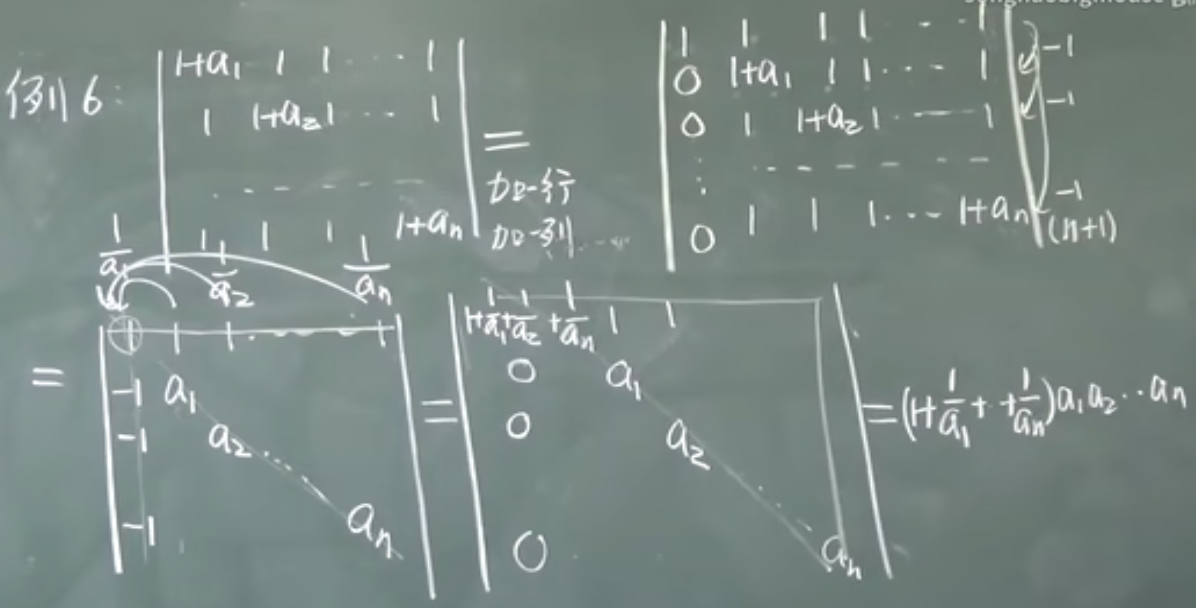 例6:
| 1+a₁ 1 1 ⋯ 1 |
| 1 1+a₂ 1 ⋯ 1 |
| ------ |
| 1 1 1 1 ⋯ 1+aₙ |
=
加一行
加一列
| 1 1 1 1 ⋯ 1 |
| 0 1+a₁ 1 1 ⋯ 1 | -1
| 0 1 1+a₂ 1 ⋯ 1 | -1
| ⋮ ------ |
| 0 1 1 1 ⋯ 1+aₙ | -1
(n+1)
1/a₁ 1/a₂ 1/aₙ
= | 1 1 1 ⋯ 1 |
| -1 a₁ |
| -1 a₂ ⋱ |
| -1 aₙ |
= | 1+1/a₁+1/a₂ +1/aₙ 1 1 |
| 0 a₁ |
| 0 a₂ ⋱ |
| 0 aₙ |
=(1+1/a₁+ +1/aₙ)a₁a₂⋯aₙ